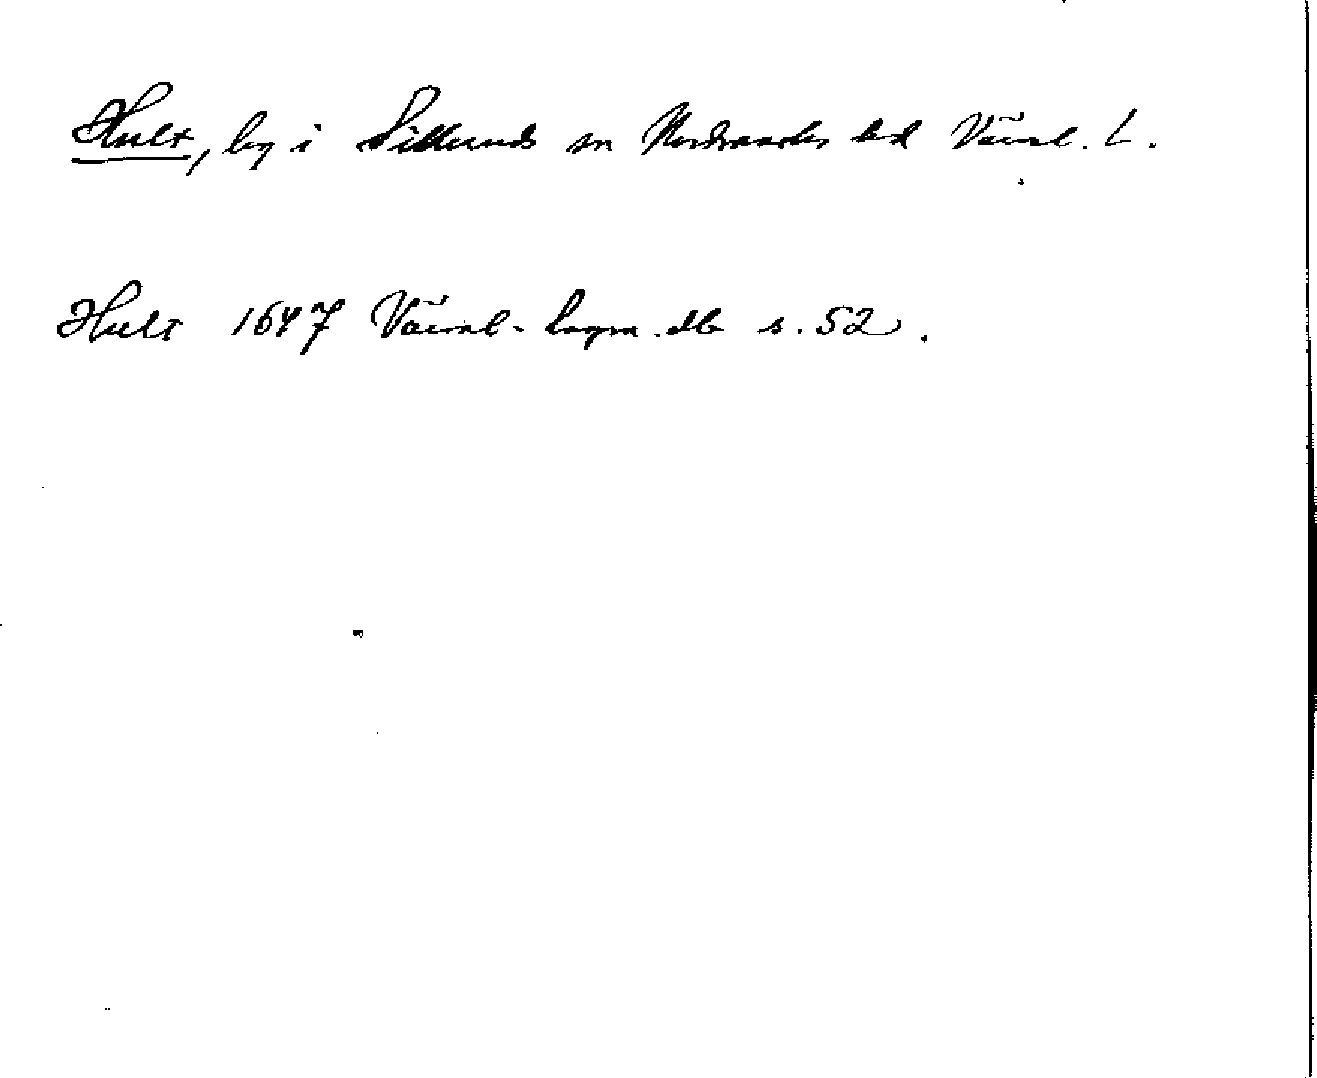 Hult, by i Sillerud sn Nordmarks hd Värml. L.
Hult 1647 Värml. lagm. db s. 52.